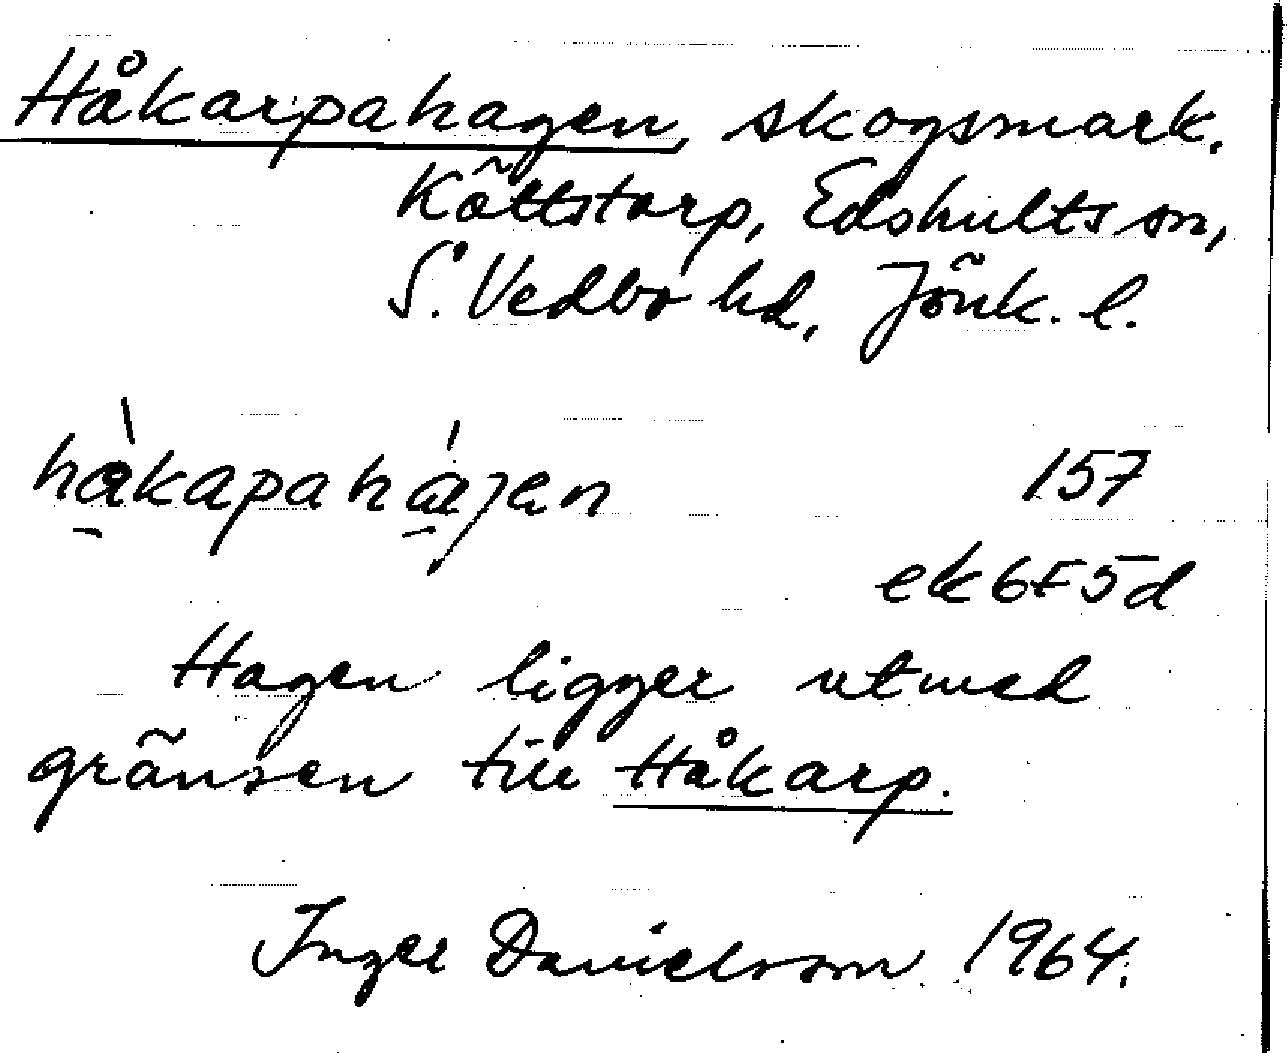 Håkarpahagen, skogsmark.
Köttstorp, Edshults sn,
S. Vedbo hd, Jönk. l.
hàkapahájen 157
ek 6F5d
Hagen ligger utmed
gränsen till Håkarp.
Inger Danielsson 1964.